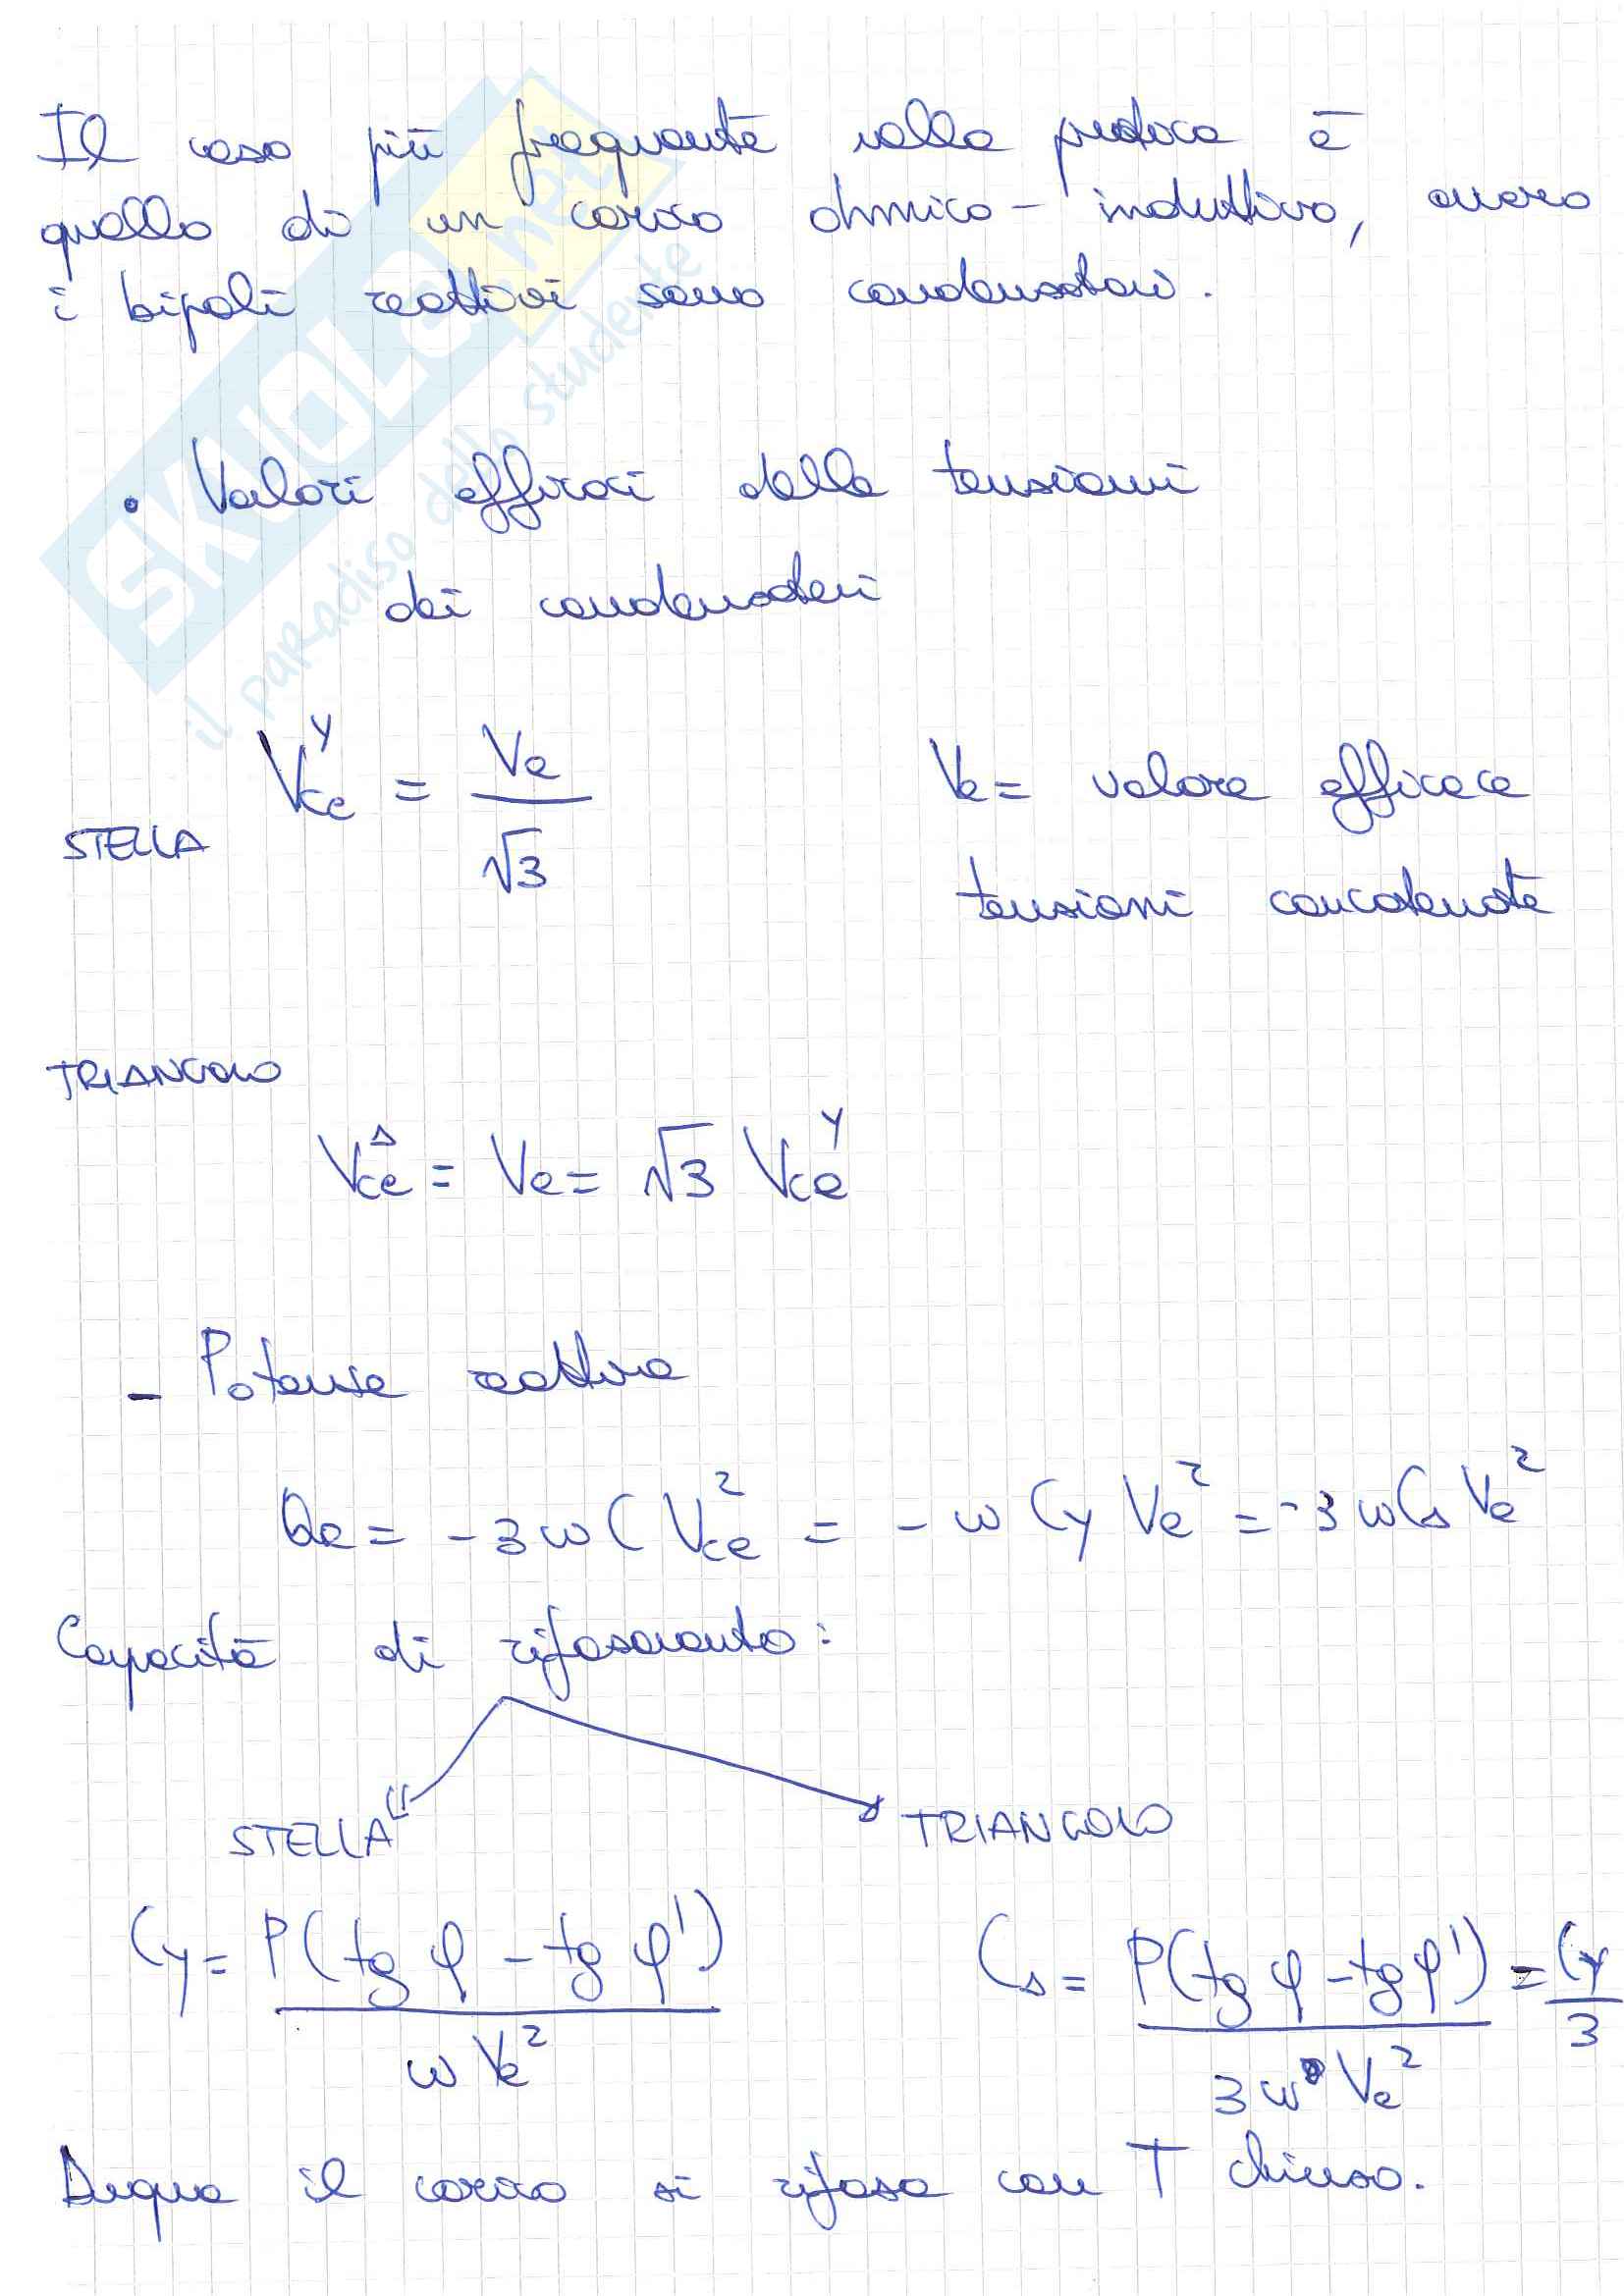 Il caso più frequente nella pratica è
quello di un carico ohmico - induttivo, ovvero
i bipoli reattivi sono condensatori.
SKUOLA.net
il paradiso dello studente
• Valori efficaci delle tensioni
dei condensatori
STELLA V_ce^Y = V_e / √3
V_e = valore efficace
tensioni concatenate
TRIANGOLO
V_ce^Δ = V_e = √3 V_ce^Y
- Potenza reattiva
Q_e = -3ωC V_ce^2 = -ω C_Y V_e^2 = -3ωC_Δ V_e^2
Capacità di rifasamento:
STELLA TRIANGOLO
C_Y = P(tg φ - tg φ') / ω V_e^2
C_Δ = P(tg φ - tg φ') / 3ω V_e^2 = C_Y / 3
il carico si rifasa con T chiuso.